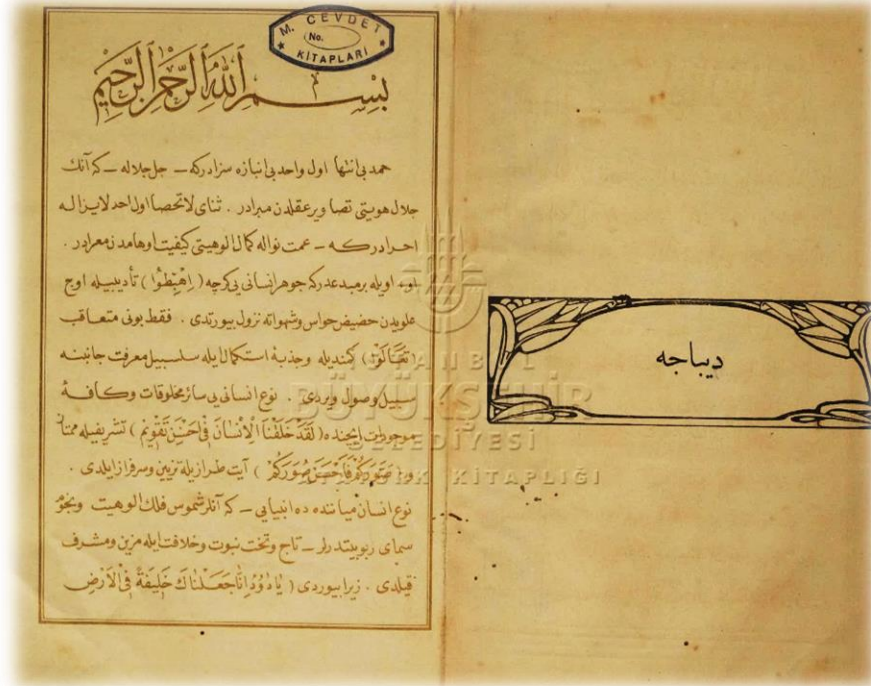 ديباجه
M. CEVDET
No.
KİTAPLARI
بِسْمِ اللهِ الرَّحْمٰنِ الرَّحِيْمِ
حمد بی‌انتها اول واحد بی‌انبازه سزادرکه – جل جلاله – که آنك
جلال هویتی تصاویر عقلدن مبرادر . ثنای لاتحصا اول احد لایزاله
احرادرکه – عمت نواله کمال الوهیتی کیفیت اوهامدن معرادر .
او، اویله بر مبدعدرکه جوهر انسانی یی کرچه ( اِهْبِطُوا ) تأدیبیله اوج
علویدن حضیض حواس وشهواته نزول بیورتدی . فقط بونی متعاقب
کمندیله وجذبهٔ استکمال ایله سلسبیل معرفت جانبنه
سبیل وصول ویردی . نوع انسانی یی سائر مخلوقات وکافهٔ
موجودات ایچنده ( لَقَدْ خَلَقْنَا الْاِنْسَانَ فِی اَحْسَنِ تَقْوِیمٍ ) تشریفیله ممتاز
صَوَّرَکُمْ فَاَحْسَنَ صُوَرَکُمْ ) آیت طرازیله تزیین وسرفراز ایلدی .
نوع انسان میاننده ده انبیایی – که آنلر شموس فلك الوهیت ونجوم
سمای ربوبیتدرلر – تاج وتخت نبوت وخلافت ایله مزین ومشرف
قیلدی . زیرا بیوردی ( یَا دَاوُدُ اِنَّا جَعَلْنَاكَ خَلِیفَةً فِی الْاَرْضِ
İSTANBUL
BÜYÜKŞEHİR
BELEDİYESİ
KİTAPLIĞI